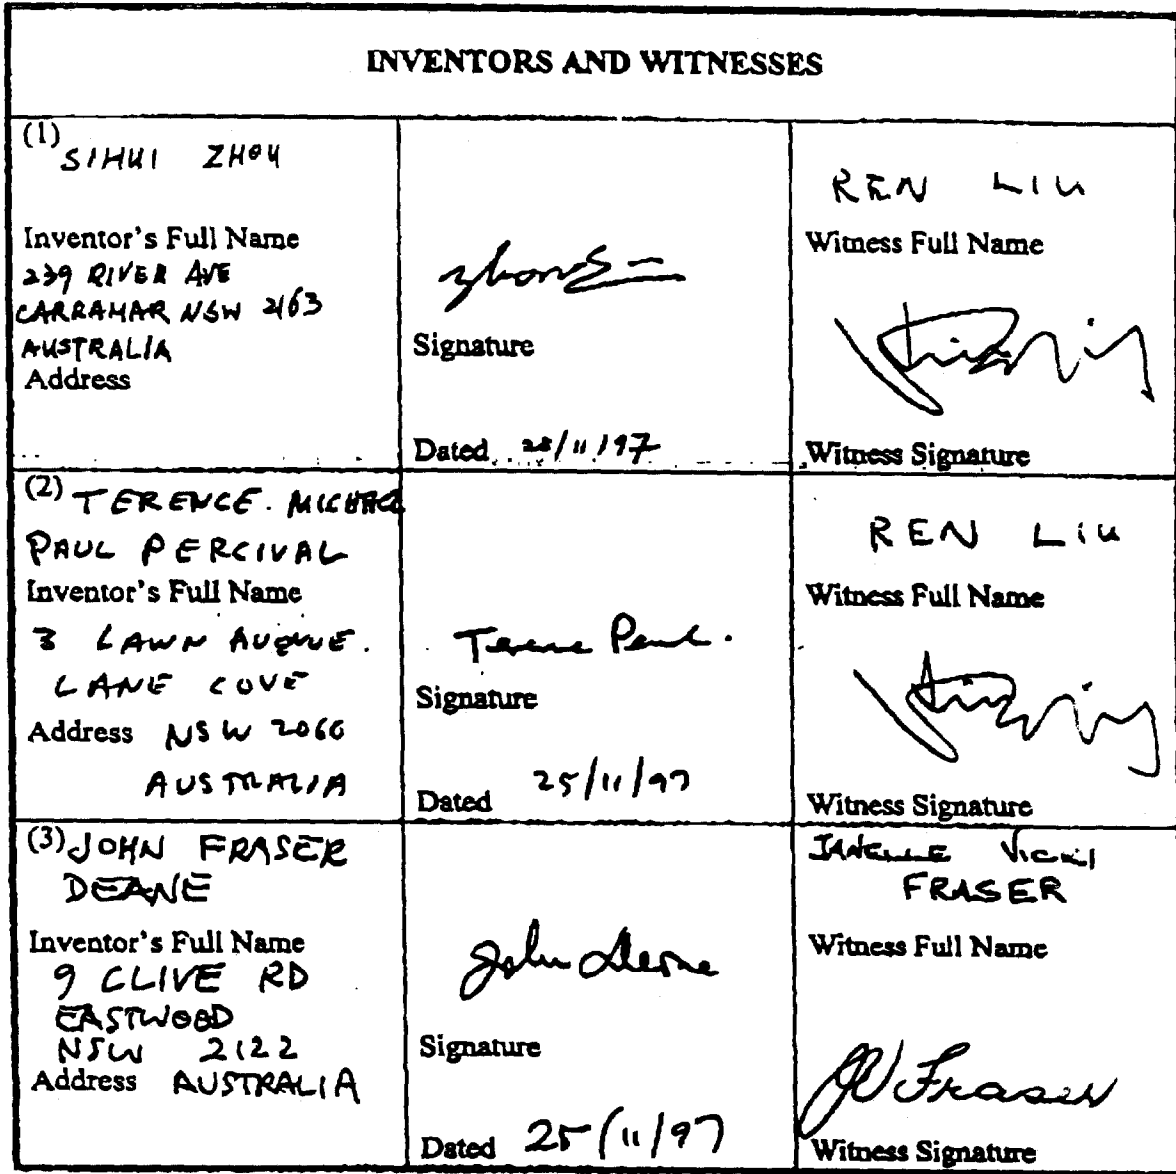 INVENTORS AND WITNESSES
(1) SIHUI ZHOU
Inventor's Full Name
239 RIVER AVE
CARRAMAR NSW 2163
AUSTRALIA
Address
Signature
Dated 25/11/97
REN LIU
Witness Full Name
Witness Signature
(2) TERENCE. MICHAEL
PAUL PERCIVAL
Inventor's Full Name
3 LAWN AVENUE.
LANE COVE
Address NSW 2066
AUSTRALIA
Signature
Dated 25/11/97
REN LIU
Witness Full Name
Witness Signature
(3) JOHN FRASER
DEANE
Inventor's Full Name
9 CLIVE RD
EASTWOOD
NSW 2122
Address AUSTRALIA
John Deane
Signature
Dated 25/11/97
JANELLE VICKI
FRASER
Witness Full Name
JV Fraser
Witness Signature